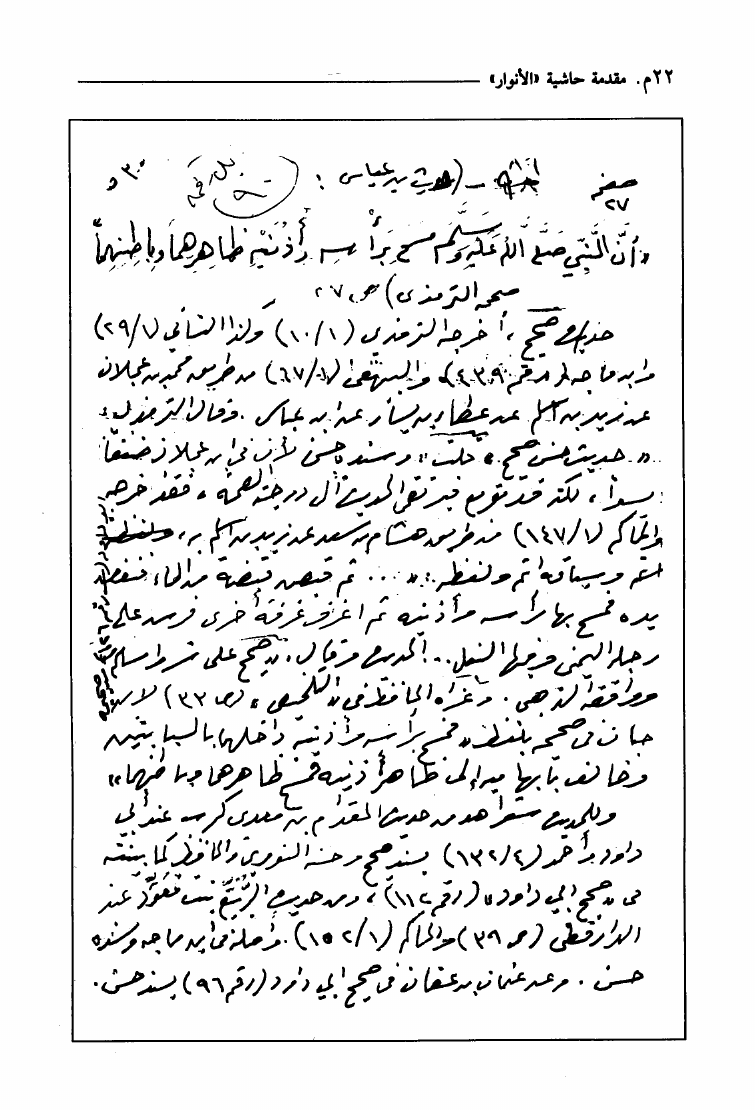 ٢٢م. مقدمة حاشية «الأنوار»
صفحة ٢٧ - (حديث ابن عباس :
«أن النبي صلى الله عليه وسلم مسح برأسه وأذنيه ظاهرهما وباطنهما
صححه الترمذي) ص ٢٧
حديث صحيح، أخرجه الترمذي (١٠/١) وكذا النسائي (٢٩/١)
وابن ماجه (رقم ٤٣٩) والبيهقي (٦٧/١) من طريق محمد بن عجلان
عن زيد بن أسلم عن عطاء بن يسار عن ابن عباس. وقال الترمذي:
«حديث حسن صحيح». قلت: وسنده حسن لأن في ابن عجلان ضعفا
يسيرا، لكنه قد توبع فيرتقي الحديث إلى درجة الصحة، فقد أخرجه
والحاكم (١٤٧/١) من طريق هشام بن سعد عن زيد بن أسلم به،
أتم وسياقه أتم ولفظه: «... ثم قبض قبضة من الماء فنفض
يده فمسح بها رأسه وأذنيه ثم اغترف غرفة أخرى فرش على
رجله اليمنى وفيها النعل... الحديث وقال: «صحيح على شرط مسلم»
ووافقه الذهبي. وعزاه الحافظ في «التلخيص» (ص ٣٣) لابن
حبان في صحيحه بلفظ: «فمسح برأسه وأذنيه داخلهما بالسبابتين
وخالف بإبهاميه إلى ظاهر أذنيه فمسح ظاهرهما وباطنهما»
وللحديث شواهد من حديث المقدام بن معدي كرب عند أبي
داود وأحمد (١٣٢/٤) بسند صحيح وحسنه النووي والحافظ كما بينته
في «صحيح أبي داود» (رقم ١١٢)، ومن حديث الربيع بنت معوذ عند
الدارقطني (ص ٣٩) والحاكم (١٥٢/١). وأصله في ابن ماجه وسنده
حسن. وعن عثمان بن عفان في صحيح أبي داود (رقم ٩٦) بسند حسن.